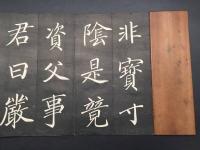 非寶寸
陰是競
資父事
君曰嚴